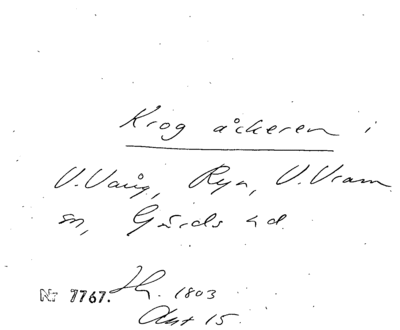 Krog åckeren i
V. Vång, Ryn, V. Vram
sn, Gärds hd.
Nr 7767. Sk. 1803
Akt 15.